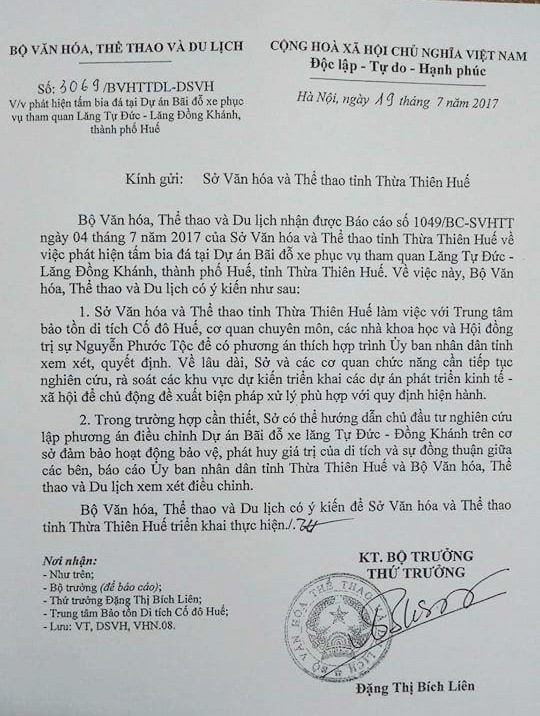 BỘ VĂN HÓA, THỂ THAO VÀ DU LỊCH
CỘNG HOÀ XÃ HỘI CHỦ NGHĨA VIỆT NAM
Độc lập - Tự do - Hạnh phúc
Số: 3069/BVHTTDL-DSVH
V/v phát hiện tấm bia đá tại Dự án Bãi đỗ xe phục
vụ tham quan Lăng Tự Đức - Lăng Đồng Khánh,
thành phố Huế
Hà Nội, ngày 19 tháng 7 năm 2017
Kính gửi: Sở Văn hóa và Thể thao tỉnh Thừa Thiên Huế
Bộ Văn hóa, Thể thao và Du lịch nhận được Báo cáo số 1049/BC-SVHTT
ngày 04 tháng 7 năm 2017 của Sở Văn hóa và Thể thao tỉnh Thừa Thiên Huế về
việc phát hiện tấm bia đá tại Dự án Bãi đỗ xe phục vụ tham quan Lăng Tự Đức -
Lăng Đồng Khánh, thành phố Huế, tỉnh Thừa Thiên Huế. Về việc này, Bộ Văn
hóa, Thể thao và Du lịch có ý kiến như sau:
1. Sở Văn hóa và Thể thao tỉnh Thừa Thiên Huế làm việc với Trung tâm
bảo tồn di tích Cố đô Huế, cơ quan chuyên môn, các nhà khoa học và Hội đồng
trị sự Nguyễn Phước Tộc để có phương án thích hợp trình Ủy ban nhân dân tỉnh
xem xét, quyết định. Về lâu dài, Sở và các cơ quan chức năng cần tiếp tục
nghiên cứu, rà soát các khu vực dự kiến triển khai các dự án phát triển kinh tế -
xã hội để chủ động đề xuất biện pháp xử lý phù hợp với quy định hiện hành.
2. Trong trường hợp cần thiết, Sở có thể hướng dẫn chủ đầu tư nghiên cứu
lập phương án điều chỉnh Dự án Bãi đỗ xe lăng Tự Đức - Đồng Khánh trên cơ
sở đảm bảo hoạt động bảo vệ, phát huy giá trị của di tích và sự đồng thuận giữa
các bên, báo cáo Ủy ban nhân dân tỉnh Thừa Thiên Huế và Bộ Văn hóa, Thể
thao và Du lịch xem xét điều chỉnh.
Bộ Văn hóa, Thể thao và Du lịch có ý kiến để Sở Văn hóa và Thể thao
tỉnh Thừa Thiên Huế triển khai thực hiện./.
Nơi nhận:
- Như trên;
- Bộ trưởng (để báo cáo);
- Thứ trưởng Đặng Thị Bích Liên;
- Trung tâm Bảo tồn Di tích Cố đô Huế;
- Lưu: VT, DSVH, VHN.08.
KT. BỘ TRƯỞNG
THỨ TRƯỞNG
BỘ VĂN HÓA THỂ THAO VÀ DU LỊCH
Đặng Thị Bích Liên